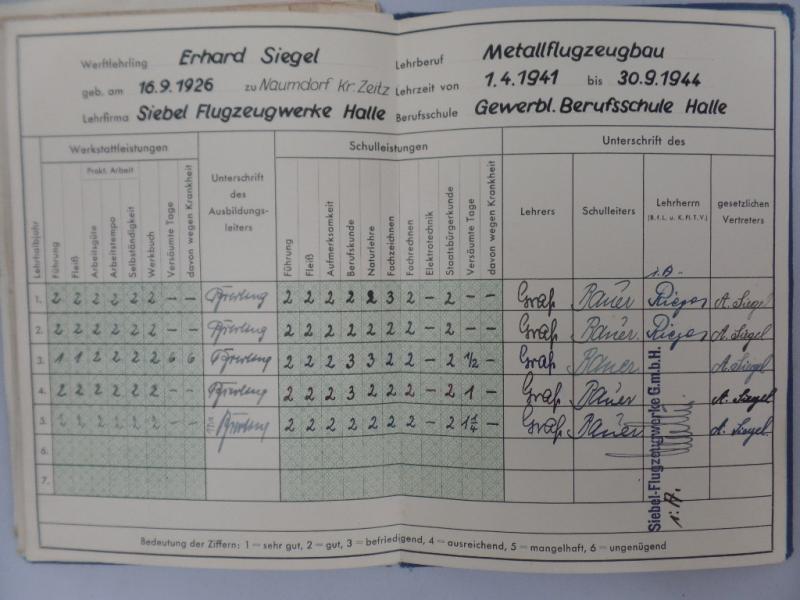 Werftlehrling Erhard Siegel Lehrberuf Metallflugzeugbau
geb. am 16.9.1926 zu Naumdorf Kr. Zeitz Lehrzeit von 1.4.1941 bis 30.9.1944
Lehrfirma Siebel Flugzeugwerke Halle Berufsschule Gewerbl. Berufsschule Halle
Lehrhalbjahr
Werkstattleistungen
Prakt. Arbeit
Führung
Fleiß
Arbeitsgüte
Arbeitstempo
Selbständigkeit
Werkbuch
Versäumte Tage
davon wegen Krankheit
Unterschrift des Ausbildungs-leiters
Schulleistungen
Führung
Fleiß
Aufmerksamkeit
Berufskunde
Naturlehre
Fachzeichnen
Fachrechnen
Elektrotechnik
Staatsbürgerkunde
Versäumte Tage
davon wegen Krankheit
Unterschrift des
Lehrers
Schulleiters
Lehrherrn
(B.f.L. u. K.fl.T.V.)
gesetzlichen Vertreters
i.A.
1. 2 2 2 2 2 2 – – 2 2 2 2 2 3 2 – 2 – – Graf Bauer A. Siegel
2. 2 2 2 2 2 2 – – 2 2 2 2 2 2 2 – 2 – – Graf Bauer A. Siegel
3. 1 1 2 2 2 2 6 6 2 2 2 3 3 2 2 – 2 1/2 – Graf Bauer A. Siegel
4. 2 2 2 2 2 2 – – 2 2 2 3 2 2 2 – 2 1 – Graf Bauer A. Siegel
5. 2 2 2 2 2 2 – – 2 2 2 2 2 2 2 – 2 1 1/4 – Graf Bauer A. Siegel
6.
7.
Siebel-Flugzeugwerke G.m.b.H.
i.A.
Bedeutung der Ziffern: 1 = sehr gut, 2 = gut, 3 = befriedigend, 4 = ausreichend, 5 = mangelhaft, 6 = ungenügend